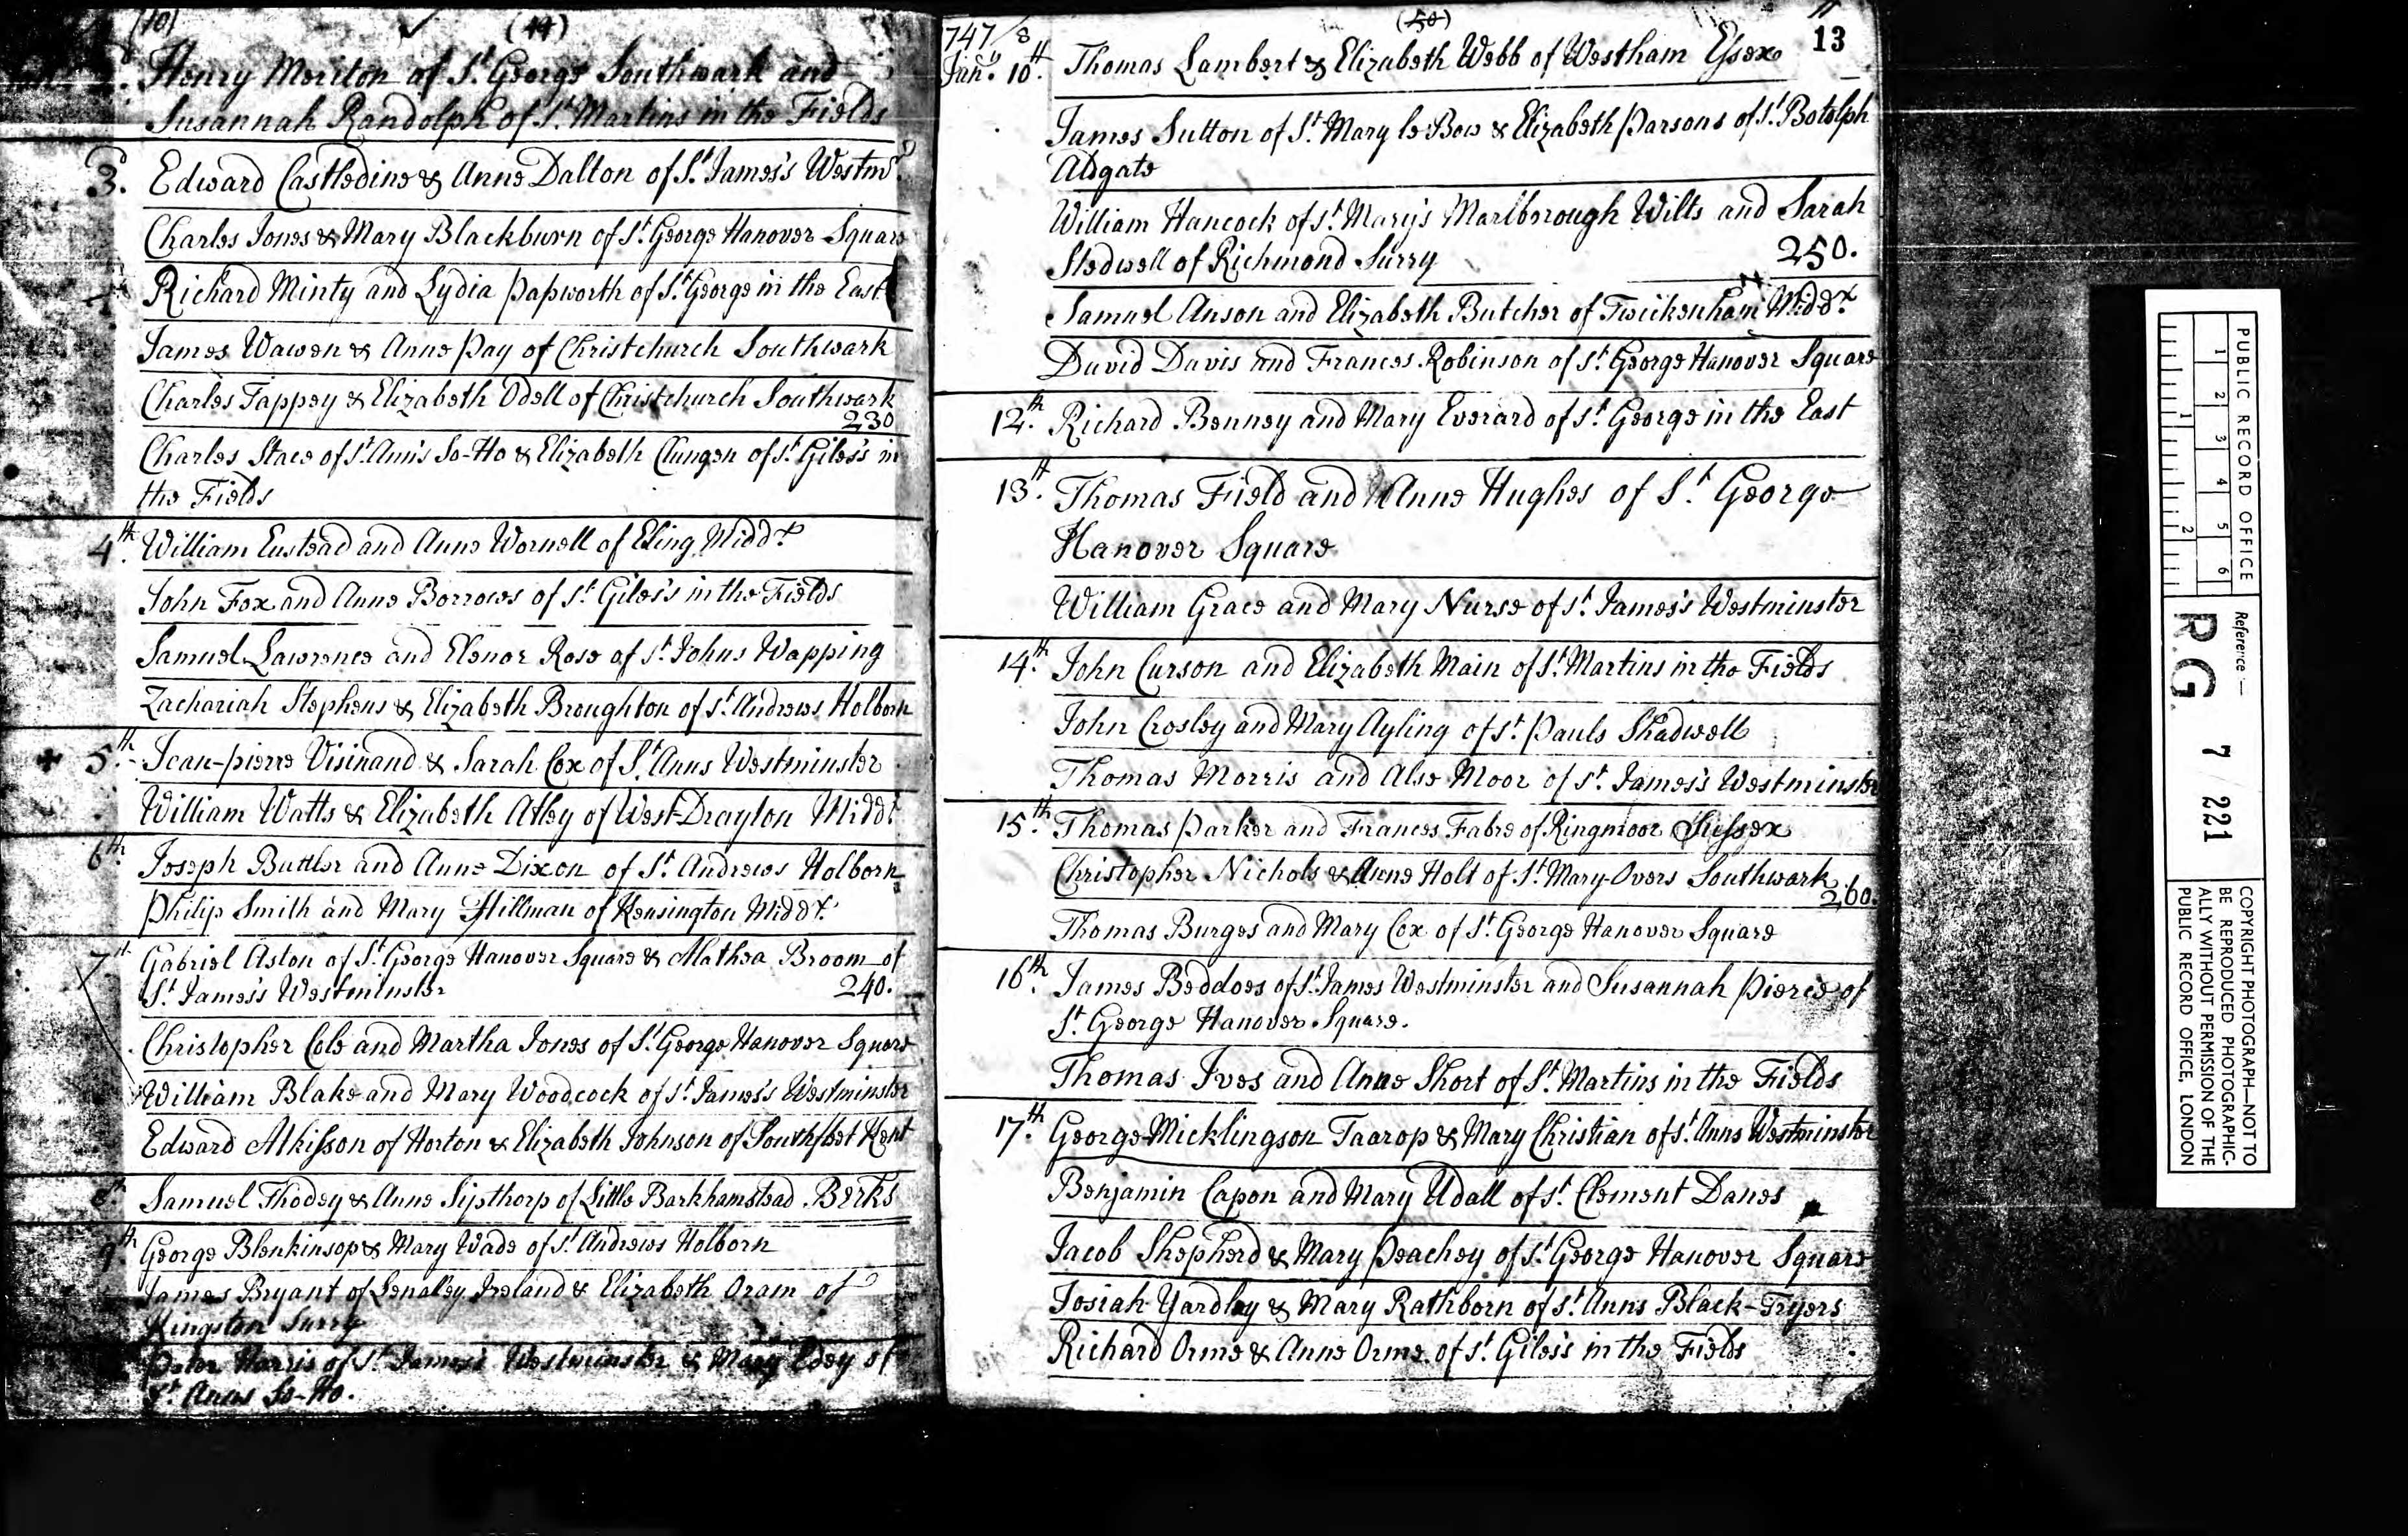 (10) (44)
Henry Meriton of St. George Southwark and
Susannah Randolph of St. Martins in the Fields
3d. Edward Castledine & Anne Dalton of St. James's Westmr.
Charles Jones & Mary Blackburn of St. George Hanover Square
Richard Minty and Lydia Papworth of St. George in the East
James Wawen & Anne Pay of Christchurch Southwark
Charles Tappey & Elizabeth Odell of Christchurch Southwark
230
Charles Stace of St. Ann's So-Ho & Elizabeth Clungen of St. Giles's in
the Fields
4th. William Eustead and Anne Wornell of Eling Middx.
John Fox and Anne Borrows of St. Giles's in the Fields
Samuel Lawrence and Elenor Rose of St. Johns Wapping
Zachariah Stephens & Elizabeth Broughton of St. Andrews Holborn
+ 5th. Jean-pierre Visinand & Sarah Cox of St. Anns Westminster
William Watts & Elizabeth Atley of West-Drayton Middx
6th. Joseph Buttler and Anne Dixon of St. Andrews Holborn
Philip Smith and Mary Hillman of Kensington Middx.
7th Gabriel Aston of St. George Hanover Square & Mathea Broom of
St. James's Westminster 240.
Christopher Cole and Martha Jones of St. George Hanover Square
William Blake and Mary Woodcock of St. James's Westminster
Edward Atkisson of Horton & Elizabeth Johnson of Southfleet Kent
8th Samuel Thodey & Anne Sipthorp of Little Barkhamstead Berks
9th. George Blenkinsop & Mary Wade of St. Andrews Holborn
James Bryant of Ireland & Elizabeth Oram of
Kingston Surry
Peter Harris of St. James's Westminster & Mary Edey of
St. Anns So-Ho.
747/8 (50) 11
Janry. 10th. Thomas Lambert & Elizabeth Webb of Westham Essex 13
James Sutton of St. Mary le Bow & Elizabeth Parsons of St. Botolph
Aldgate
William Hancock of St. Mary's Marlborough Wilts and Sarah
Stedwell of Richmond Surry 250.
Samuel Anson and Elizabeth Butcher of Twickenham Middx.
David Davis and Frances Robinson of St. George Hanover Square
12th. Richard Benney and Mary Everard of St. George in the East
13th. Thomas Field and Anne Hughes of St. George
Hanover Square
William Grace and Mary Nurse of St. James's Westminster
14th. John Curson and Elizabeth Main of St. Martins in the Fields
John Crosley and Mary Ayling of St. Pauls Shadwell
Thomas Morris and Alse Moor of St. James's Westminster
15th. Thomas Parker and Frances Fabre of Ringmoor Sussex
Christopher Nichols & Anne Holt of St. Mary-Overs Southwark
260.
Thomas Burges and Mary Cox of St. George Hanover Square
16th. James Beddoes of St. James Westminster and Susannah Pierce of
St. George Hanover Square.
Thomas Ives and Anne Short of St. Martins in the Fields
17th. George Micklingson Taarop & Mary Christian of St. Anns Westminster
Benjamin Capon and Mary Udall of St. Clement Danes
Jacob Shepherd & Mary Peachey of St. George Hanover Square
Josiah Yardley & Mary Rathborn of St. Anns Black-Fryers
Richard Orme & Anne Orme of St. Giles's in the Fields
PUBLIC RECORD OFFICE
1 2 3 4 5 6
1 2
Reference:—
R.G. 7 221
COPYRIGHT PHOTOGRAPH—NOT TO
BE REPRODUCED PHOTOGRAPHIC-
ALLY WITHOUT PERMISSION OF THE
PUBLIC RECORD OFFICE, LONDON